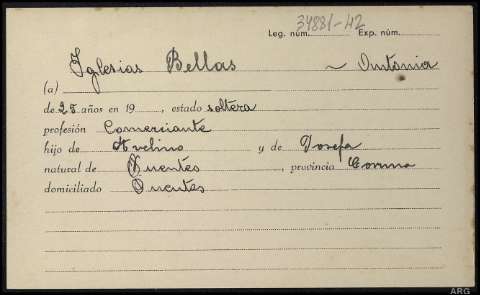 Leg. núm. 34881-42 Exp. núm.
Iglesias Bellas ~ Antonia
(a)
de 25 años en 19 , estado soltera
profesión Comerciante
hijo de Avelino y de Josefa
natural de Puentes , provincia Coruna
domiciliado Puentes
ARG